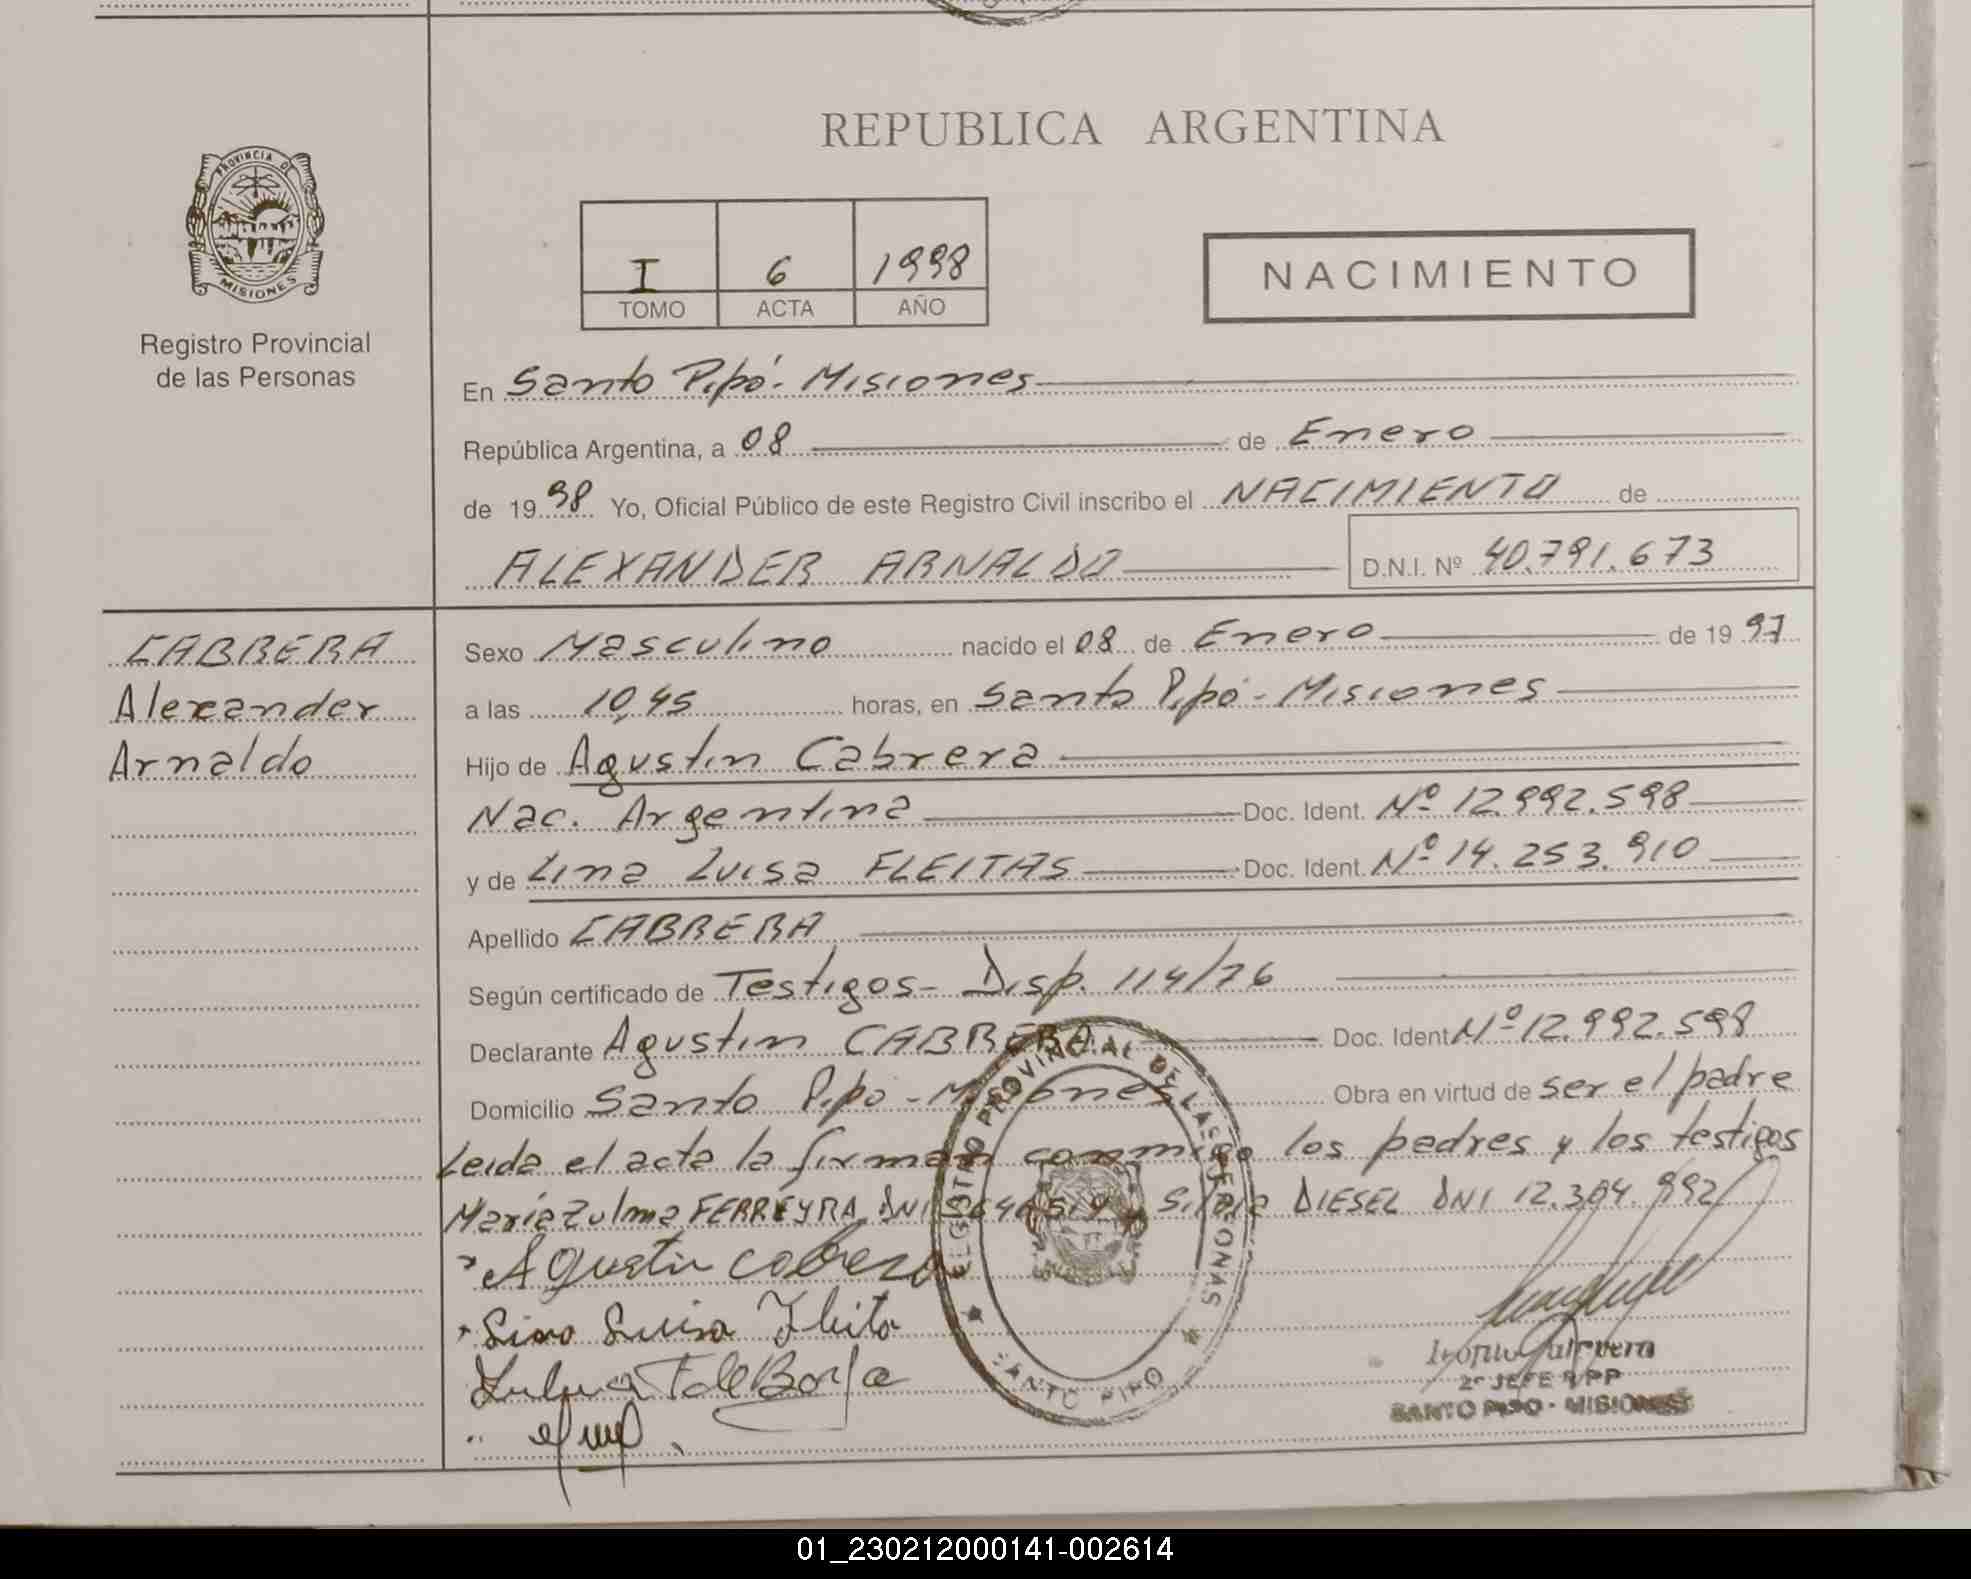 REPUBLICA ARGENTINA
PROVINCIA DE
MISIONES
Registro Provincial
de las Personas
I 6 1998
TOMO ACTA AÑO
NACIMIENTO
En Santo Pipó - Misiones
República Argentina, a 08 de Enero
de 1998 Yo, Oficial Público de este Registro Civil inscribo el NACIMIENTO de
ALEXANDER ARNALDO D.N.I. Nº 40.791.673
CABRERA
Alexander
Arnaldo
Sexo Masculino nacido el 08 de Enero de 1997
a las 10,45 horas, en Santo Pipó - Misiones
Hijo de Agustin Cabrera
Nac. Argentina Doc. Ident. Nº 12.992.598
y de Lina Luisa FLEITAS Doc. Ident. Nº 14.253.910
Apellido CABRERA
Según certificado de Testigos - Disp. 114/76
Declarante Agustin CABRERA Doc. Ident. Nº 12.992.598
Domicilio Santo Pipó - Misiones Obra en virtud de ser el padre
Leida el acta la firman conmigo los padres y los testigos
Maria Zulma FERREYRA DNI y Silvia DIESEL DNI 12.304.992
Agustin Cabrera
Luisa
de Borja
REGISTRO PROVINCIAL DE LAS PERSONAS
SANTO PIPO
2º JEFE RPP
SANTO PIPO - MISIONES
01_230212000141-002614